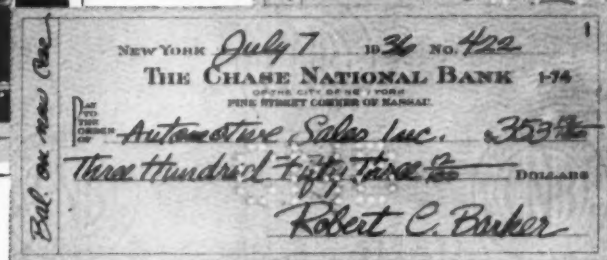 Bal. on new Car
NEW YORK July 7 1936 No. 422
THE CHASE NATIONAL BANK 1-74
OF THE CITY OF NEW YORK
PINE STREET CORNER OF NASSAU.
PAY TO THE ORDER OF Automotive Sales Inc. $353
Three Hundred Fifty Three DOLLARS
Robert C. Barker